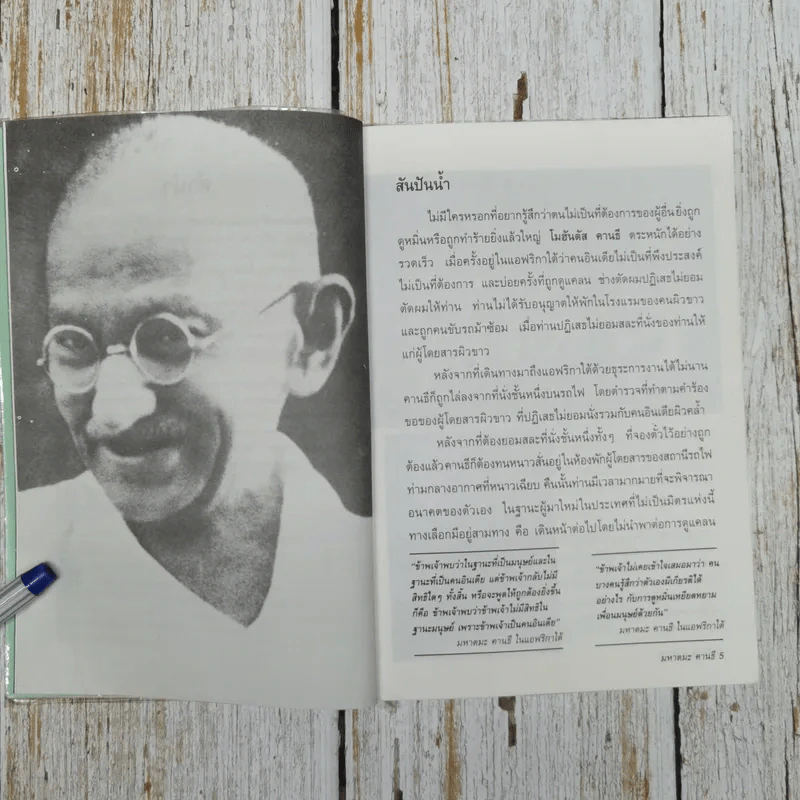 สันปันน้ำ
ไม่มีใครหรอกที่อยากรู้สึกว่าตนไม่เป็นที่ต้องการของผู้อื่น ยิ่งถูก
ดูหมิ่นหรือถูกทำร้ายยิ่งแล้วใหญ่ โมฮันดัส คานธี ตระหนักได้อย่าง
รวดเร็ว เมื่อครั้งอยู่ในแอฟริกาใต้ว่าคนอินเดียไม่เป็นที่พึงประสงค์
ไม่เป็นที่ต้องการ และบ่อยครั้งที่ถูกดูแคลน ช่างตัดผมปฏิเสธไม่ยอม
ตัดผมให้ท่าน ท่านไม่ได้รับอนุญาตให้พักในโรงแรมของคนผิวขาว
และถูกคนขับรถม้าซ้อม เมื่อท่านปฏิเสธไม่ยอมสละที่นั่งของท่านให้
แก่ผู้โดยสารผิวขาว
หลังจากที่เดินทางมาถึงแอฟริกาใต้ด้วยธุระการงานได้ไม่นาน
คานธีก็ถูกไล่ลงจากที่นั่งชั้นหนึ่งบนรถไฟ โดยตำรวจที่ทำตามคำร้อง
ขอของผู้โดยสารผิวขาว ที่ปฏิเสธไม่ยอมนั่งรวมกับคนอินเดียผิวคล้ำ
หลังจากที่ต้องยอมสละที่นั่งชั้นหนึ่งทั้งๆ ที่จองตั๋วไว้อย่างถูก
ต้องแล้ว คานธีก็ต้องทนหนาวสั่นอยู่ในห้องพักผู้โดยสารของสถานีรถไฟ
ท่ามกลางอากาศที่หนาวเฉียบ คืนนั้นท่านมีเวลามากมายที่จะพิจารณา
อนาคตของตัวเอง ในฐานะผู้มาใหม่ในประเทศที่ไม่เป็นมิตรแห่งนี้
ทางเลือกมีอยู่สามทาง คือ เดินหน้าต่อไปโดยไม่นำพาต่อการดูแคลน
"ข้าพเจ้าพบว่าในฐานะที่เป็นมนุษย์และใน
ฐานะที่เป็นคนอินเดีย แต่ข้าพเจ้ากลับไม่มี
สิทธิใดๆ ทั้งสิ้น หรือจะพูดให้ถูกต้องยิ่งขึ้น
ก็คือ ข้าพเจ้าพบว่าข้าพเจ้าไม่มีสิทธิใน
ฐานะมนุษย์ เพราะข้าพเจ้าเป็นคนอินเดีย"
มหาตมะ คานธี ในแอฟริกาใต้
"ข้าพเจ้าไม่เคยเข้าใจเสมอมาว่า คน
บางคนรู้สึกว่าตัวเองมีเกียรติได้
อย่างไร กับการดูหมิ่นเหยียดหยาม
เพื่อนมนุษย์ด้วยกัน"
มหาตมะ คานธี ในแอฟริกาใต้
มหาตมะ คานธี 5